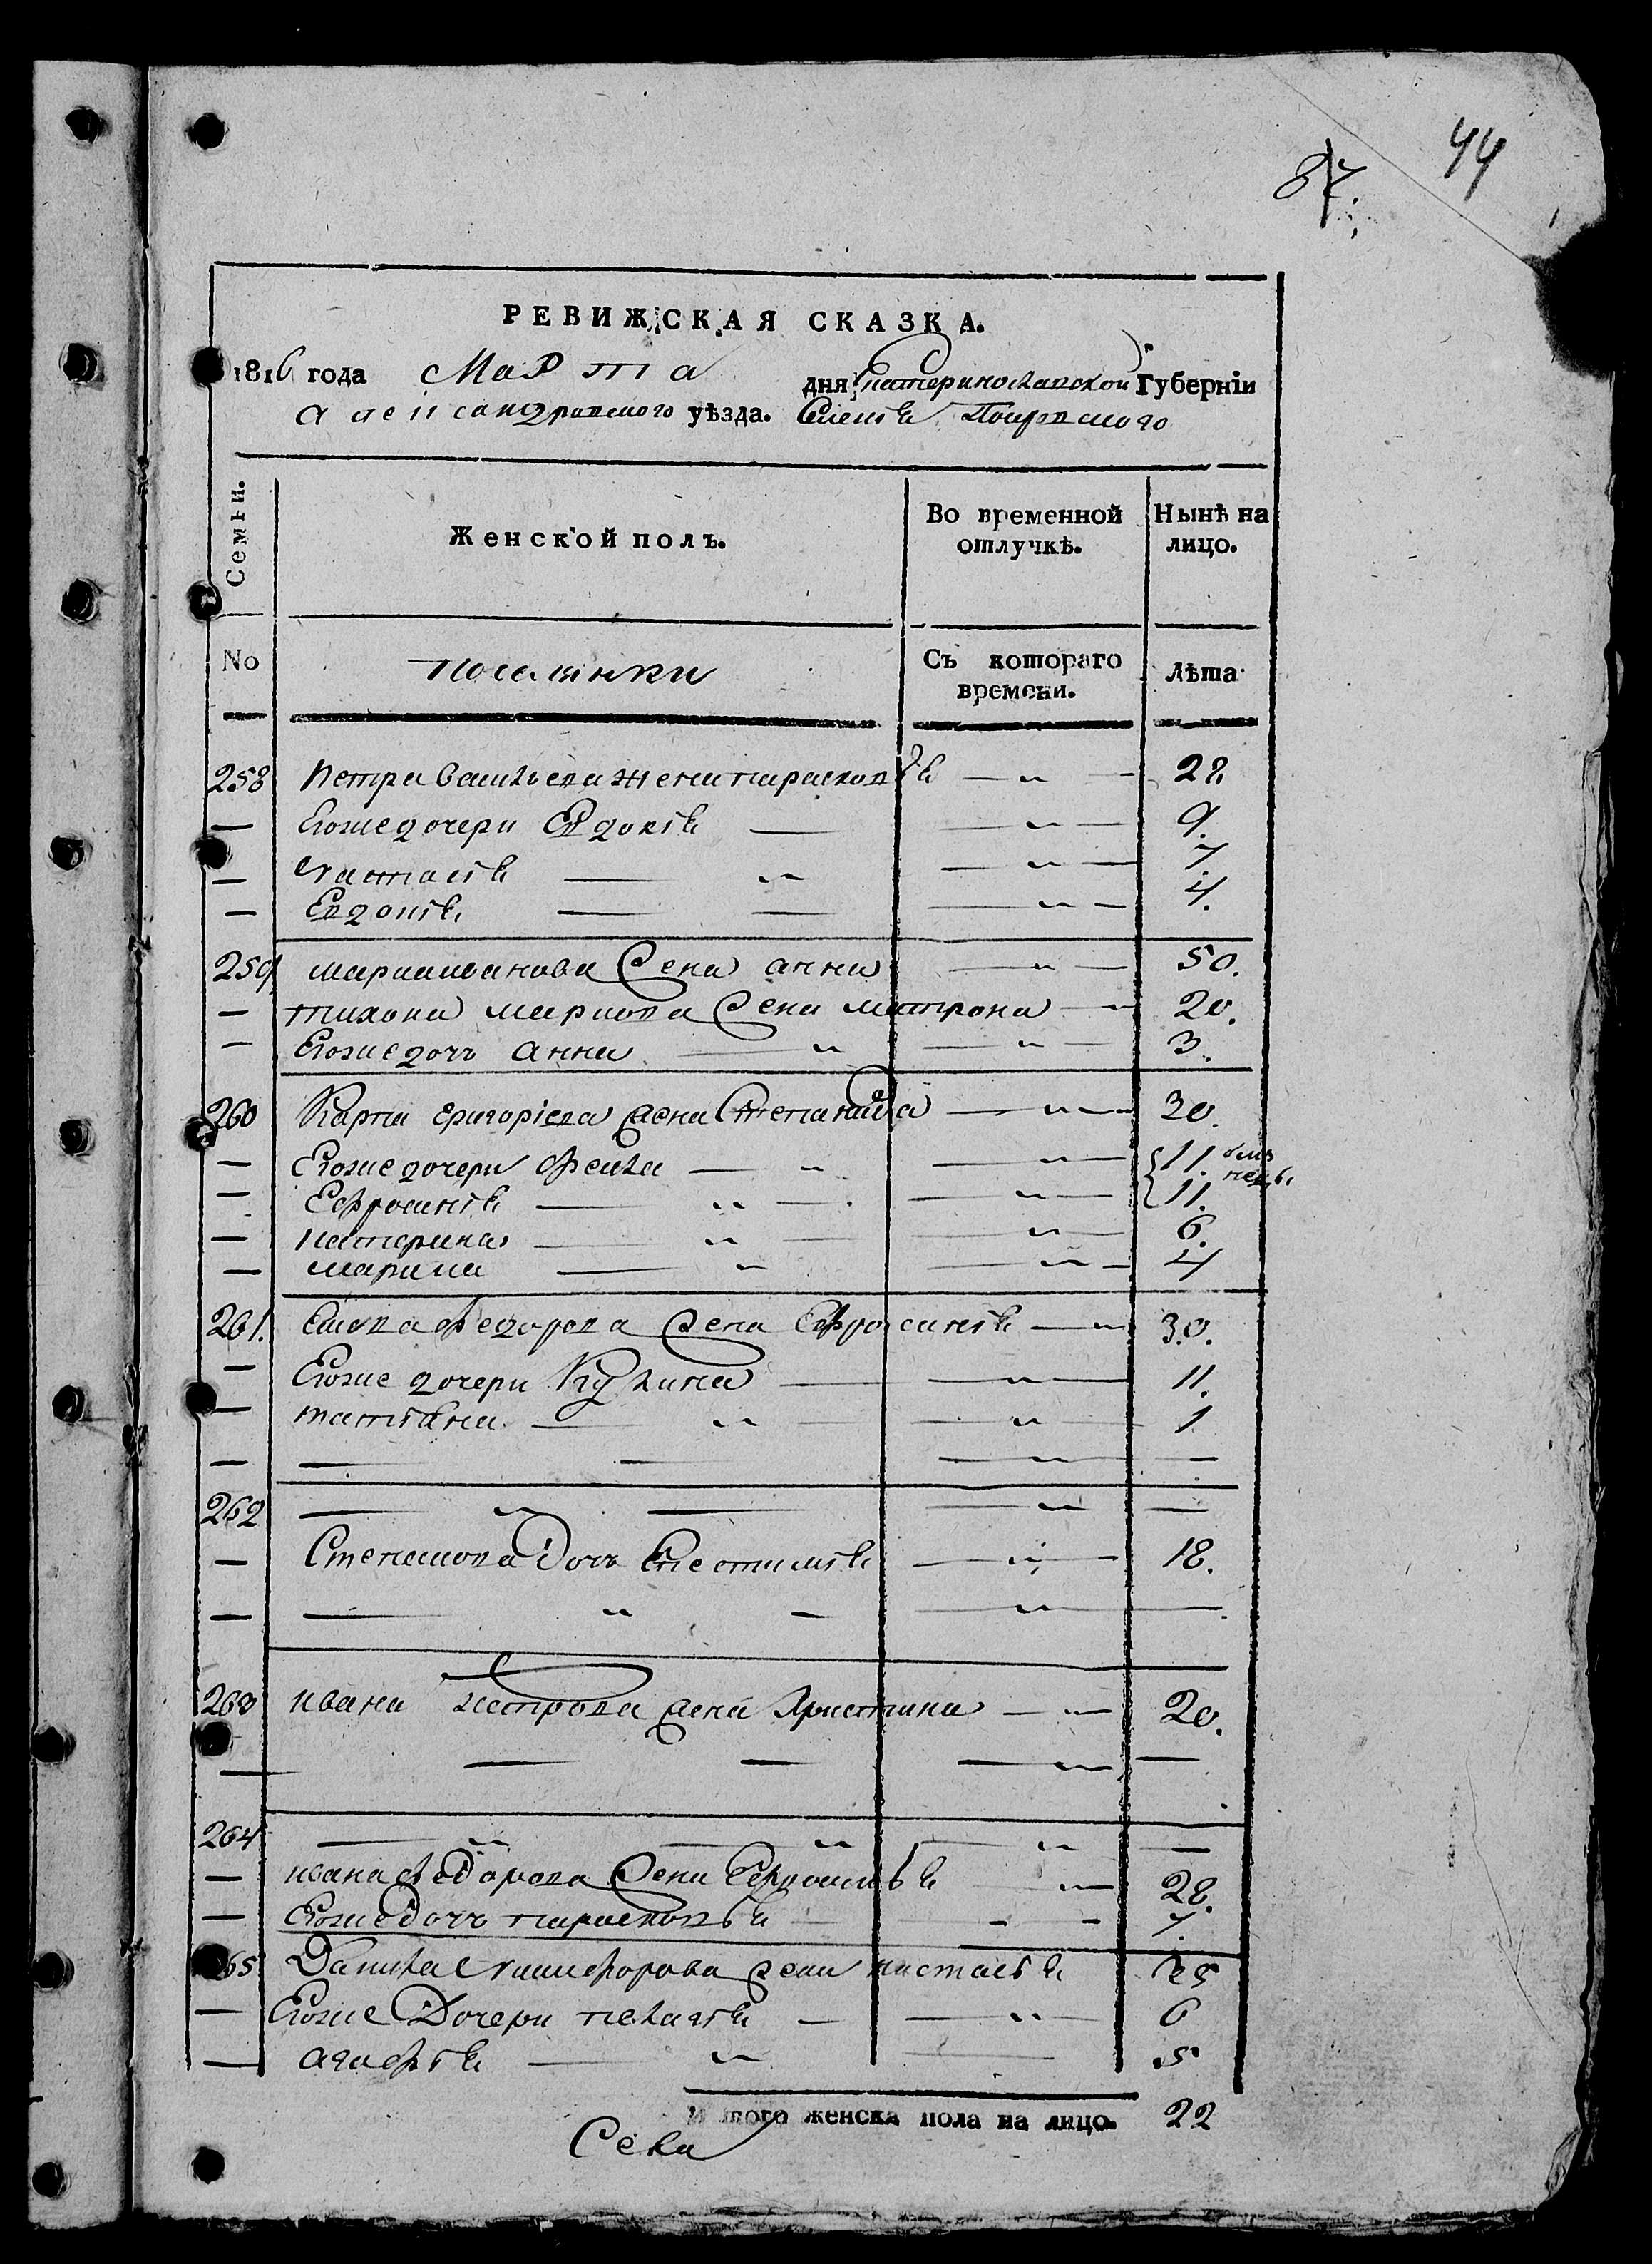 44
87.
РЕВИЖСКАЯ СКАЗКА.
1816 года Марта дня Екатеринославской Губерніи
Александровского уѣзда. Селенія Покровского
Семьи.
Женской полъ.
Во временной отлучкѣ.
Нынѣ на лицо.
No
поселянки
Съ котораго времени.
Лѣта
258 Петра Васильева жена парасковѣя — „ — 28
— Егоже дочери Евдокія — — „ — 9.
— Настасія — „ — „ — 7.
— Евдокія — — — „ — 4.
259 марка иванова Жена анна — „ — 50.
— тихона маркова Жена матрона — „ 20.
— Егоже дочь анна — „ — „ — 3.
260 Карпа григоріева жена Степанида — „ — 30.
— Егоже дочери Фекла — „ — „ — 11. близнецы
— Ефросинія — „ — „ — 11.
— катерина — „ — „ — 6.
— марина — „ — „ — 4
261. Федорова Жена Ефросинія — „ 30.
— Егоже дочери Кулина — — „ — 11.
— татіана — „ — „ — 1
— — — — „ — —
262 — „ — — „ — —
— дочь — „ — 18.
— — „ — — „ — —
263 ивана петрова жена Христина — „ — 20.
— — — — „ —
264 — „ — „ — „ —
— ивана федорова Жена Ефросинія „ — 28.
— Егоже Дочь парасковія — — - - 7.
265 Данила Никифорова жена настасія 25
— Егоже Дочери пелагія — — „ — 6
— агафія — „ — 5
Итого женска пола на лицо. 22
Села